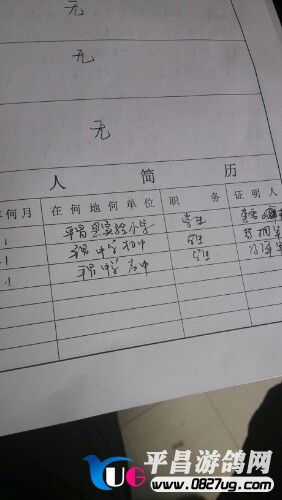 无
无
无
人 简 历
年何月 在何地何单位 职 务 证明人
.1 平昌县实验小学 学生
.1 平昌中学初中 学生
.1 平昌中学高中 学生
平昌游鸽网
YUG www.0827ug.com